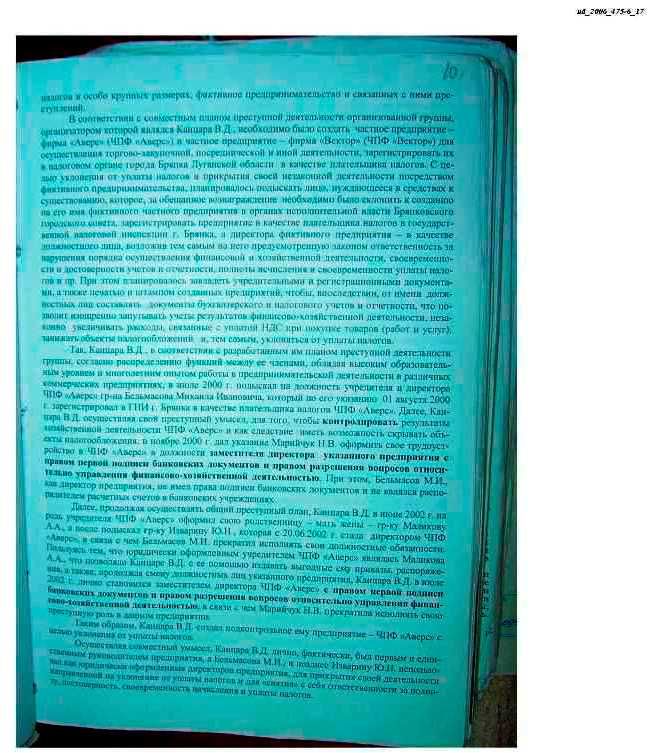 ud_2006_475-6_17
10.
налогов в особо крупных размерах, фиктивное предпринимательство и связанных с ними пре-
ступлений.
В соответствии с совместным планом преступной деятельности организованной группы,
организатором которой являлся Канцара В.Д., необходимо было создать частное предприятие –
фирма «Аверс» (ЧПФ «Аверс») и частное предприятие – фирма «Вектор» (ЧПФ «Вектор») для
осуществления торгово-закупочной, посреднической и иной деятельности, зарегистрировать их
в налоговом органе города Брянка Луганской области в качестве плательщика налогов. С це-
лью уклонения от уплаты налогов и прикрытия своей незаконной деятельности посредством
фиктивного предпринимательства, планировалось подыскать лицо, нуждающееся в средствах к
существованию, которое, за обещанное вознаграждение необходимо было склонить к созданию
на его имя фиктивного частного предприятия в органах исполнительной власти Брянковского
городского совета, зарегистрировать предприятие в качестве плательщика налогов в государст-
венной налоговой инспекции г. Брянка, а директора фиктивного предприятия – в качестве
должностного лица, возложив тем самым на него предусмотренную законом ответственность за
нарушения порядка осуществления финансовой и хозяйственной деятельности, своевременно-
сти и достоверности учетов и отчетности, полноты исчисления и своевременности уплаты нало-
гов и пр. При этом планировалось завладеть учредительными и регистрационными документа-
ми, а также печатью и штампом созданных предприятий, чтобы, впоследствии, от имени долж-
ностных лиц составлять документы бухгалтерского и налогового учетов и отчетности, что по-
зволит изощренно запутывать учеты результатов финансово-хозяйственной деятельности, неза-
конно увеличивать расходы, связанные с уплатой НДС при покупке товаров (работ и услуг),
занижать объекты налогообложения и, тем самым, уклоняться от уплаты налогов.
Так, Канцара В.Д., в соответствии с разработанным им планом преступной деятельности
группы, согласно распределению функций между ее членами, обладая высшим образователь-
ным уровнем и многолетним опытом работы в предпринимательской деятельности в различных
коммерческих предприятиях, в июле 2000 г. подыскал на должность учредителя и директора
ЧПФ «Аверс» гр-на Бельмасова Михаила Ивановича, который по его указанию 01 августа 2000
г. зарегистрировал в ГНИ г. Брянка в качестве плательщика налогов ЧПФ «Аверс». Далее, Кан-
цара В.Д. осуществляя свой преступный умысел, для того, чтобы контролировать результаты
хозяйственной деятельности ЧПФ «Аверс» и как следствие иметь возможность скрывать объ-
екты налогообложения, в ноябре 2000 г. дал указание Марийчук Н.В. оформить свое трудоуст-
ройство в ЧПФ «Аверс» в должности заместителя директора указанного предприятия с
правом первой подписи банковских документов и правом разрешения вопросов относи-
тельно управления финансово-хозяйственной деятельностью. При этом, Бельмасов М.И.,
как директор предприятия, не имел права подписи банковских документов и не являлся распо-
рядителем расчетных счетов в банковских учреждениях.
Далее, продолжая осуществлять общий преступный план, Канцара В.Д. в июне 2002 г. на
роль учредителя ЧПФ «Аверс» оформил свою родственницу – мать жены – гр-ку Маликову
А.А., а после подыскал гр-ку Изварину Ю.Н., которая с 20.06.2002 г. стала директором ЧПФ
«Аверс», в связи с чем Бельмасов М.И. прекратил исполнять свои должностные обязанности.
Пользуясь тем, что юридически оформленным учредителем ЧПФ «Аверс» являлась Маликова
А.А., что позволяло Канцара В.Д. с ее помощью издавать выгодные ему приказы, распоряже-
ния, а также, продолжая смену должностных лиц указанного предприятия, Канцара В.Д. в июле
2002 г. лично становится заместителем директора ЧПФ «Аверс» с правом первой подписи
банковских документов и правом разрешения вопросов относительно управления финан-
сово-хозяйственной деятельностью, в связи с чем Марийчук Н.В. прекратила исполнять свою
преступную роль в данном предприятии.
Таким образом, Канцара В.Д. создал подконтрольное ему предприятие – ЧПФ «Аверс» с
целью уклонения от уплаты налогов.
Осуществляя совместный умысел, Канцара В.Д. лично, фактически, был первым и един-
ственным руководителем предприятия, а Бельмасова М.И., и позднее Изварину Ю.Н. использо-
вал как юридически оформленных директоров предприятия, для прикрытия своей деятельности
направленной на уклонение от уплаты налогов и для «снятия» с себя ответственности за полно-
ту, достоверность, своевременность начисления и уплаты налогов.